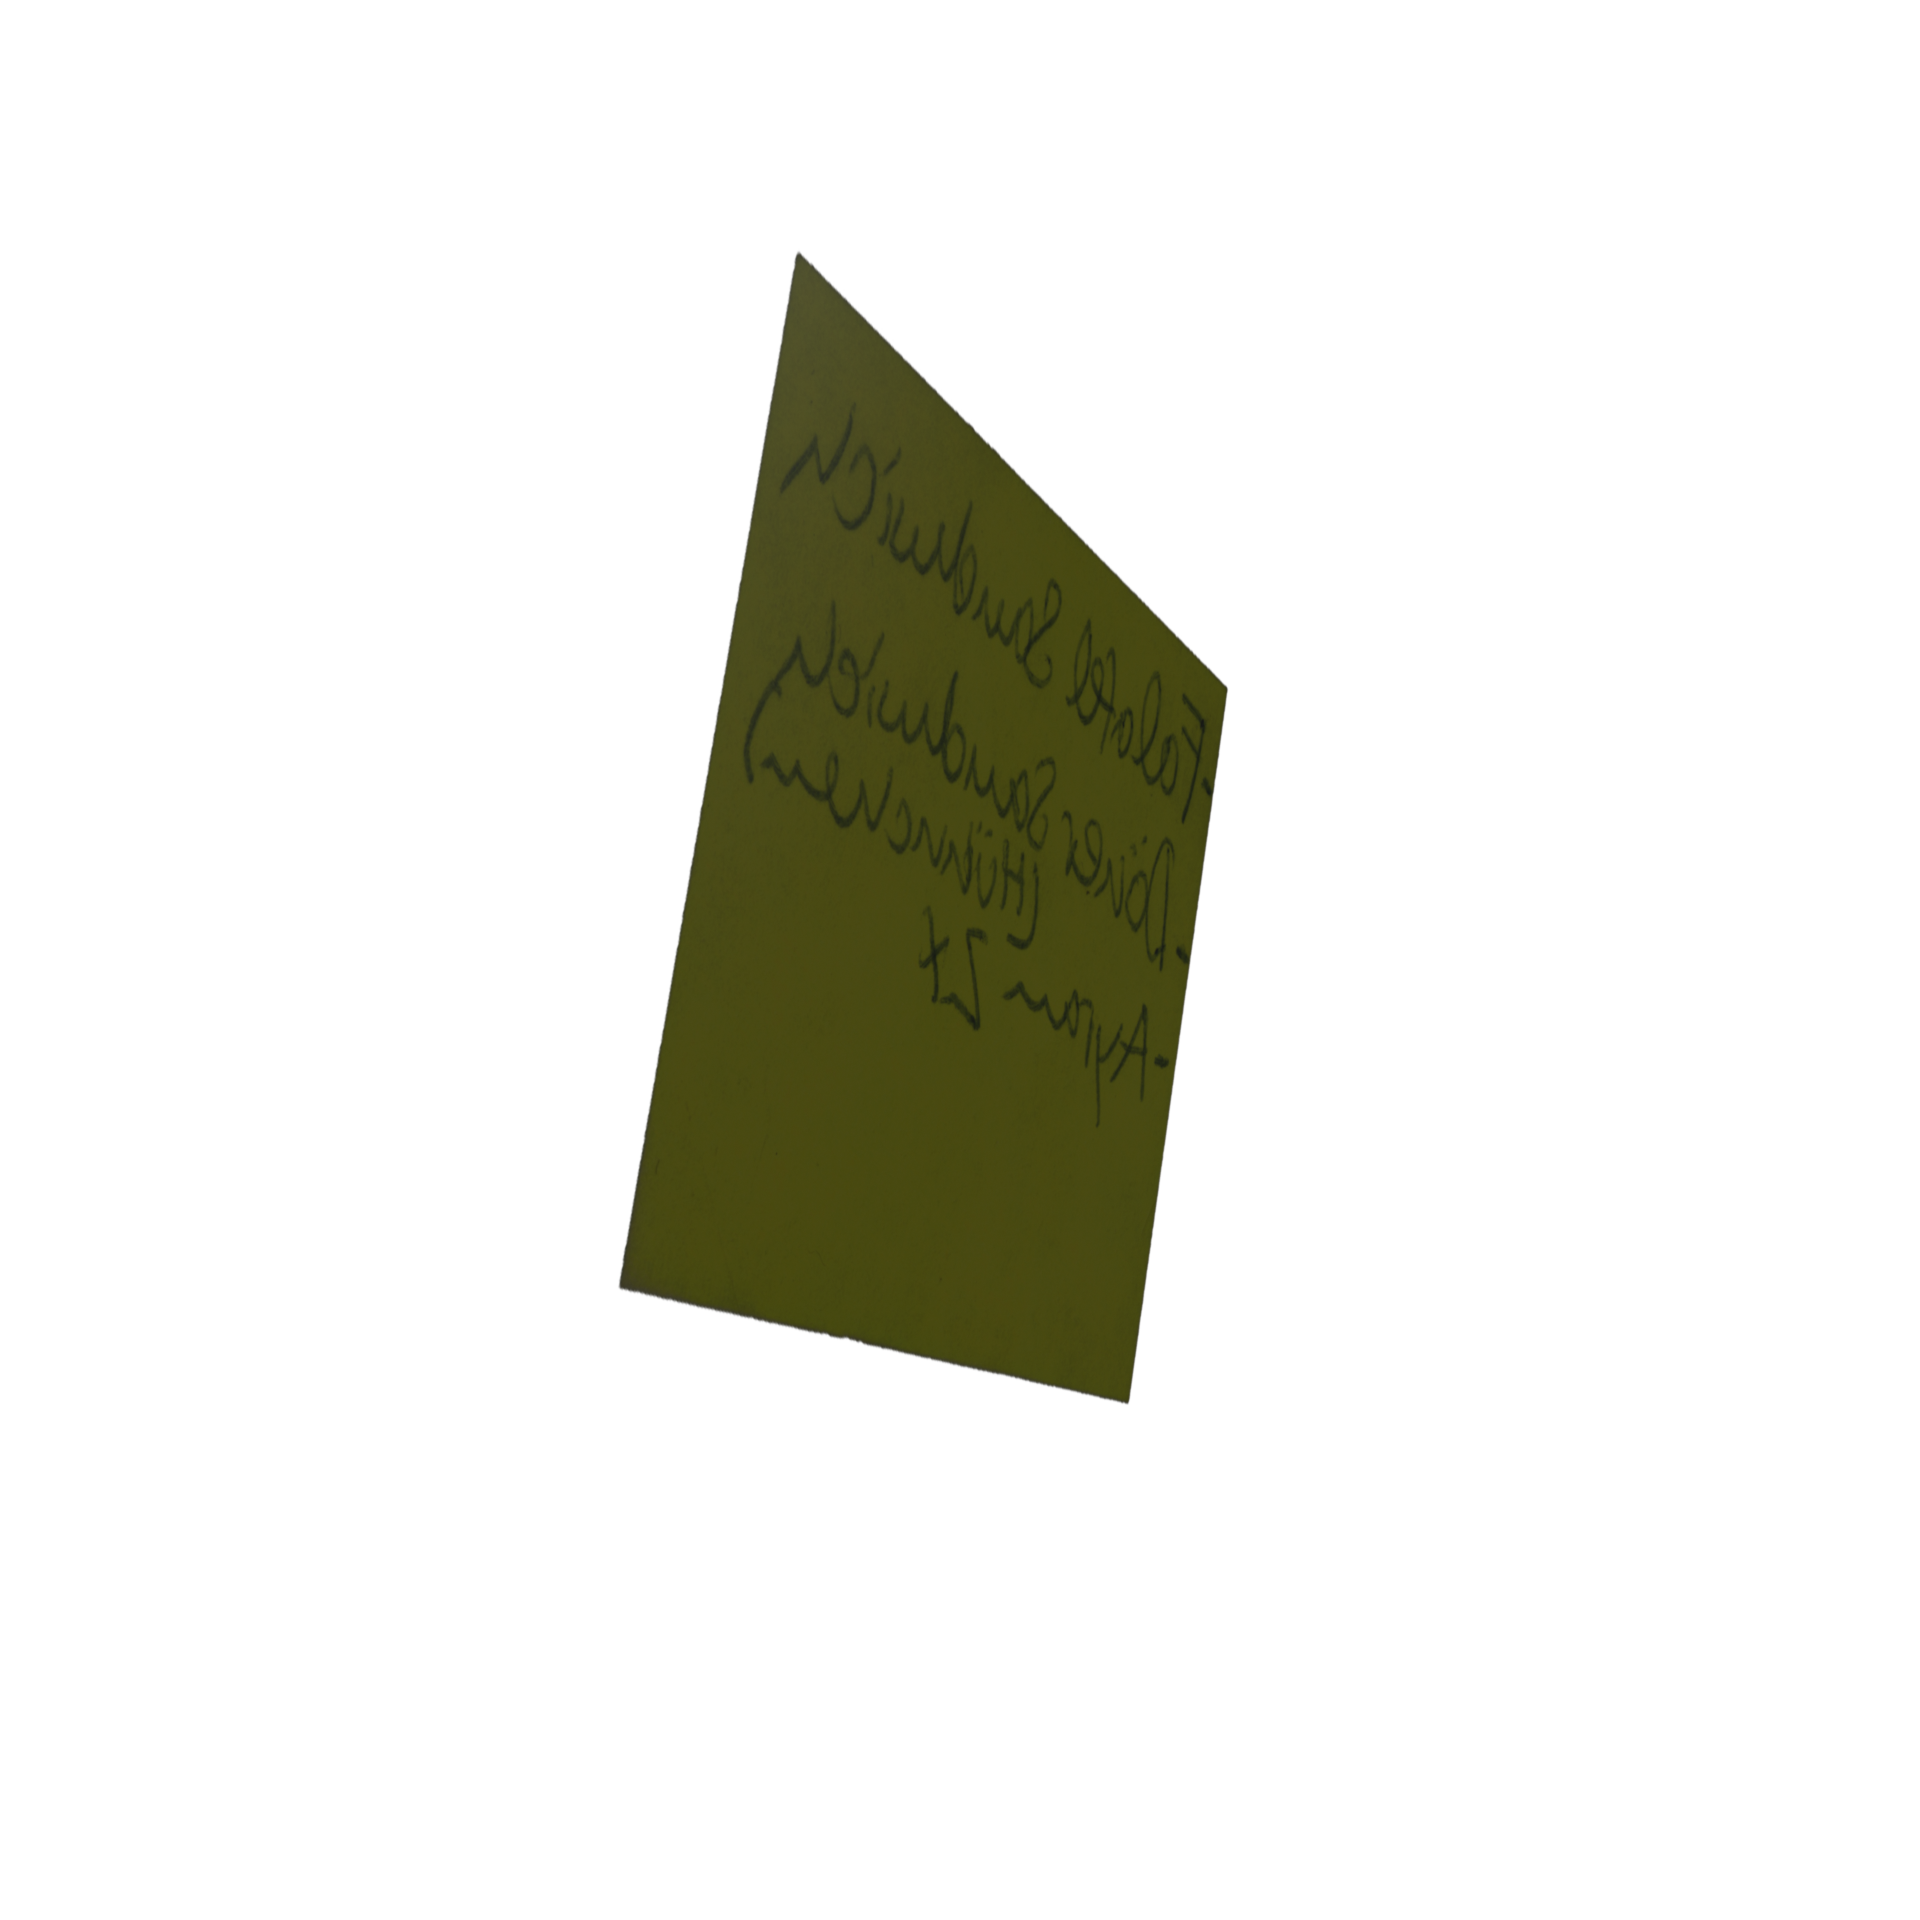 - Falafel Sandwich
- Döner Sandwich
(Hünnchen)
- Ayran